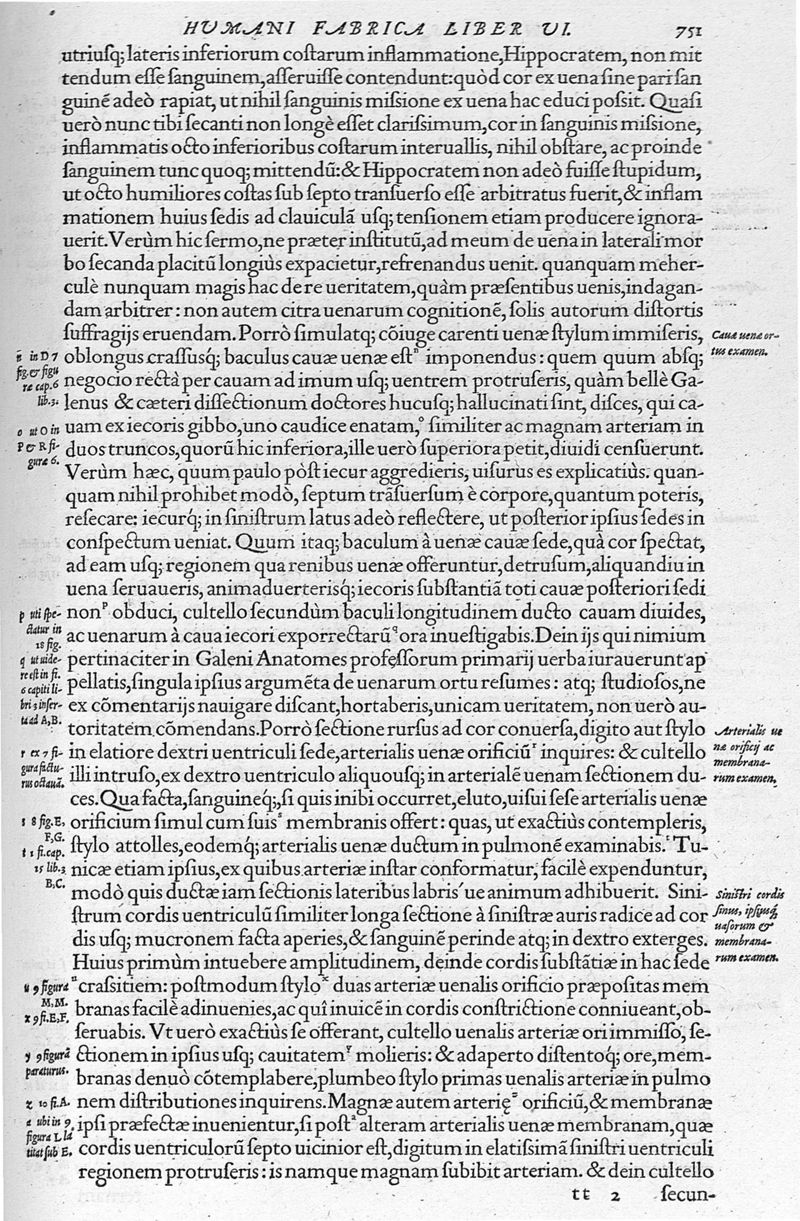 HUMANI FABRICA LIBER VI. 751
utriusq; lateris inferiorum costarum inflammatione, Hippocratem, non mit
tendum esse sanguinem, asseruisse contendunt: quòd cor ex uena sine pari san
guinẽ adeò rapiat, ut nihil sanguinis missione ex uena hac educi possit. Quasi
uerò nunc tibi secanti non longè esset clarissimum, cor in sanguinis missione,
inflammatis octo inferioribus costarum interuallis, nihil obstare, ac proinde
sanguinem tunc quoq; mittendũ: & Hippocratem non adeò fuisse stupidum,
ut octo humiliores costas sub septo transuerso esse arbitratus fuerit, & inflam
mationem huius sedis ad clauiculã usq; tensionem etiam producere ignora-
uerit. Verùm hic sermo, ne præter institutũ, ad meum de uena in laterali mor
bo secanda placitũ longiùs expacietur, refrenandus uenit. quanquam meher-
culè nunquam magis hac de re ueritatem, quàm præsentibus uenis, indagan-
dam arbitrer: non autem citra uenarum cognitionẽ, solis autorum distortis
suffragijs eruendam. Porrò simulatq; cõiuge carenti uenæ stylum immiseris,
oblongus crassusq; baculus cauæ uenæ estⁿ imponendus: quem quum absq;
negocio rectà per cauam ad imum usq; uentrem protruseris, quàm bellè Ga-
lenus & cæteri dissectionum doctores hucusq; hallucinati sint, disces, qui ca-
uam ex iecoris gibbo, uno caudice enatam,º similiter ac magnam arteriam in
duos truncos, quorũ hic inferiora, ille uerò superiora petit, diuidi censuerunt.
Verùm hæc, quum paulo pòst iecur aggredieris, uisurus es explicatiùs. quan-
quam nihil prohibet modò, septum trãsuersum è corpore, quantum poteris,
resecare: iecurq́; in sinistrum latus adeò reflectere, ut posterior ipsius sedes in
conspectum ueniat. Quum itaq; baculum à uenæ cauæ sede, quà cor spectat,
ad eam usq; regionem qua renibus uenæ offeruntur, detrusum, aliquandiu in
uena seruaueris, animaduerterisq́; iecoris substantiã toti cauæ posteriori sedi
nonᵖ obduci, cultello secundùm baculi longitudinem ducto cauam diuides,
ac uenarum à caua iecori exporrectarũ^q ora inuestigabis. Dein ijs qui nimium
pertinaciter in Galeni Anatomes professorum primarij uerba iurauerunt ap
pellatis, singula ipsius argumẽta de uenarum ortu resumes: atq; studiosos, ne
ex cõmentarijs nauigare discant, hortaberis, unicam ueritatem, non uerò au-
toritatem cõmendans. Porrò sectione rursus ad cor conuersa, digito aut stylo
in elatiore dextri uentriculi sede, arterialis uenæ orificiũʳ inquires: & cultello
illi intruso, ex dextro uentriculo aliquousq; in arterialẽ uenam sectionem du-
ces. Qua facta, sanguineq́;, si quis inibi occurret, eluto, uisui sese arterialis uenæ
orificium simul cum suisˢ membranis offert: quas, ut exactiùs contempleris,
stylo attolles, eodemq́; arterialis uenæ ductum in pulmonẽ examinabis.ᵗ Tu-
nicæ etiam ipsius, ex quibus arteriæ instar conformatur, facilè expenduntur,
modò quis ductæ iam sectionis lateribus labris'ue animum adhibuerit. Sini-
strum cordis uentriculũ similiter longa sectione à sinistræ auris radice ad cor
dis usq; mucronem facta aperies, & sanguinẽ perinde atq; in dextro exterges.
Huius primùm intuebere amplitudinem, deinde cordis substãtiæ in hac sede
ᵘcrassitiem: postmodum styloˣ duas arteriæ uenalis orificio præpositas mem
branas facilè adinuenies, ac quî inuicẽ in cordis constrictione conniueant, ob-
seruabis. Vt uerò exactiùs se offerant, cultello uenalis arteriæ ori immisso, se-
ctionem in ipsius usq; cauitatemʸ molieris: & adaperto distentoq́; ore, mem-
branas denuò cõtemplabere, plumbeo stylo primas uenalis arteriæ in pulmo
nem distributiones inquirens. Magnæ autem arterięᶻ orificiũ, & membranæ
ipsi præfectæ inuenientur, si postᵃ alteram arterialis uenæ membranam, quæ
cordis uentriculorum septo uicinior est, digitum in elatissimã sinistri uentriculi
regionem protruseris: is namque magnam subibit arteriam. & dein cultello
tt 2 secun-
n in D 7
fig. & figu
ræ cap. 6
lib. 3.
o ut O in
P & R fi-
guræ 6.
p uti spe-
ctatur in
18 fig.
q ut uide-
re est in fi.
6 capiti li-
bri 3 inser-
ta ad A, B.
r ex 7 fi-
gura factu-
rus octauã.
s 8 fig. E,
F, G.
t 1 fi. cap.
15 lib. 3
B, C.
u 9 figura
M, M.
x 9 fi. E, F.
y 9 figurã
paraturus.
z 10 fi. A.
a ubi in 9.
figura L la
titat sub E.
Cauæ uenæ or-
tus examen.
Arterialis ue
næ orificij ac
membrana-
rum examen.
Sinistri cordis
sinus, ipsiusq́;
uasorum &
membrana-
rum examen.